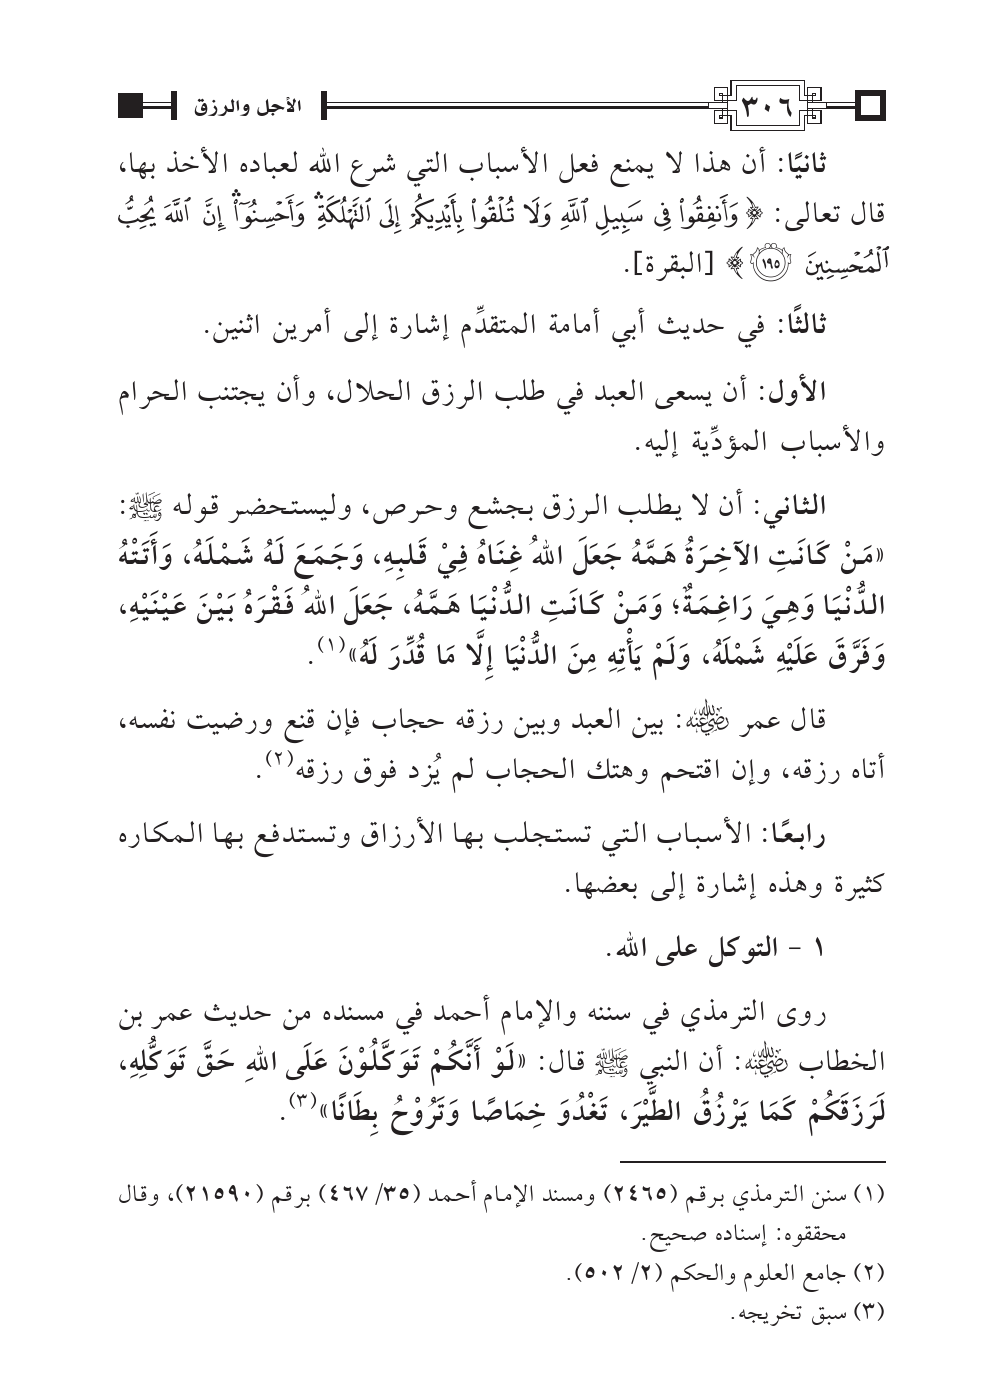 ٣٠٦ الأجل والرزق
ثانيًا: أن هذا لا يمنع فعل الأسباب التي شرع الله لعباده الأخذ بها،
قال تعالى: ﴿وَأَنفِقُواْ فِي سَبِيلِ ٱللَّهِ وَلَا تُلۡقُواْ بِأَيۡدِيكُمۡ إِلَى ٱلتَّهۡلُكَةِ وَأَحۡسِنُوٓاْۚ إِنَّ ٱللَّهَ يُحِبُّ
ٱلۡمُحۡسِنِينَ ١٩٥﴾ [البقرة].
ثالثًا: في حديث أبي أمامة المتقدِّم إشارة إلى أمرين اثنين.
الأول: أن يسعى العبد في طلب الرزق الحلال، وأن يجتنب الحرام
والأسباب المؤدِّية إليه.
الثاني: أن لا يطلب الرزق بجشع وحرص، وليستحضر قوله ﷺ:
«مَنْ كَانَتِ الآخِرَةُ هَمَّهُ جَعَلَ اللهُ غِنَاهُ فِيْ قَلبِهِ، وَجَمَعَ لَهُ شَمْلَهُ، وَأَتَتْهُ
الدُّنْيَا وَهِيَ رَاغِمَةٌ؛ وَمَنْ كَانَتِ الدُّنْيَا هَمَّهُ، جَعَلَ اللهُ فَقْرَهُ بَيْنَ عَيْنَيْهِ،
وَفَرَّقَ عَلَيْهِ شَمْلَهُ، وَلَمْ يَأْتِهِ مِنَ الدُّنْيَا إِلَّا مَا قُدِّرَ لَهُ»(١).
قال عمر رضي الله عنه: بين العبد وبين رزقه حجاب فإن قنع ورضيت نفسه،
أتاه رزقه، وإن اقتحم وهتك الحجاب لم يُزد فوق رزقه(٢).
رابعًا: الأسباب التي تستجلب بها الأرزاق وتستدفع بها المكاره
كثيرة وهذه إشارة إلى بعضها.
١ – التوكل على الله.
روى الترمذي في سننه والإمام أحمد في مسنده من حديث عمر بن
الخطاب رضي الله عنه: أن النبي ﷺ قال: «لَوْ أَنَّكُمْ تَوَكَّلُوْنَ عَلَى اللهِ حَقَّ تَوَكُّلِهِ،
لَرَزَقَكُمْ كَمَا يَرْزُقُ الطَّيْرَ، تَغْدُوَ خِمَاصًا وَتَرُوْحُ بِطَانًا»(٣).
(١) سنن الترمذي برقم (٢٤٦٥) ومسند الإمام أحمد (٣٥/ ٤٦٧) برقم (٢١٥٩٠)، وقال
محققوه: إسناده صحيح.
(٢) جامع العلوم والحكم (٢/ ٥٠٢).
(٣) سبق تخريجه.